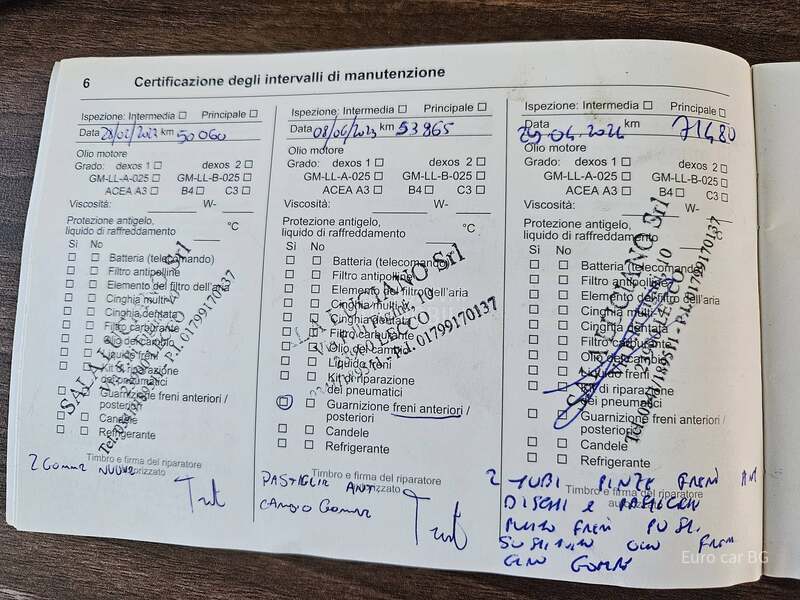 6 Certificazione degli intervalli di manutenzione
Ispezione: Intermedia Principale
Data km 50060
Olio motore
Grado: dexos 1 dexos 2
GM-LL-A-025 GM-LL-B-025
ACEA A3 B4 C3
Viscosità: W-
Protezione antigelo,
liquido di raffreddamento °C
Si No
Batteria (telecomando)
Filtro antipolline
Elemento del filtro dell'aria
Cinghia multi-V
Cinghia dentata
Filtro carburante
Olio del cambio
Liquido freni
Kit di riparazione
dei pneumatici
Guarnizione freni anteriori /
posteriori
Candele
Refrigerante
Timbro e firma del riparatore
autorizzato
2 Gomme nuove
P.I. 01799170137
Ispezione: Intermedia Principale
Data 08/06/2023 km 53965
Olio motore
Grado: dexos 1 dexos 2
GM-LL-A-025 GM-LL-B-025
ACEA A3 B4 C3
Viscosità: W-
Protezione antigelo,
liquido di raffreddamento °C
Si No
Batteria (telecomando)
Filtro antipolline
Elemento del filtro dell'aria
Cinghia multi-V
Cinghia dentata
Filtro carburante
Olio del cambio
Liquido freni
Kit di riparazione
dei pneumatici
Guarnizione freni anteriori /
posteriori
Candele
Refrigerante
Timbro e firma del riparatore
autorizzato
PASTIGLIE ANT
CAMBIO GOMME
LUCIANO Srl
LECCO
P.I. 01799170137
Ispezione: Intermedia Principale
Data 29.04.2024 km 71480
Olio motore
Grado: dexos 1 dexos 2
GM-LL-A-025 GM-LL-B-025
ACEA A3 B4 C3
Viscosità: W-
Protezione antigelo,
liquido di raffreddamento °C
Si No
Batteria (telecomando)
Filtro antipolline
Elemento del filtro dell'aria
Cinghia multi-V
Cinghia dentata
Filtro carburante
Olio del cambio
Liquido freni
Kit di riparazione
dei pneumatici
Guarnizione freni anteriori /
posteriori
Candele
Refrigerante
Timbro e firma del riparatore
autorizzato
2 TUBI PINZE FRENI ANT
DISCHI e
FRENI POST.
OLIO FRENI
GOMME
LUCIANO Srl
P.I. 01799170137
Euro car BG